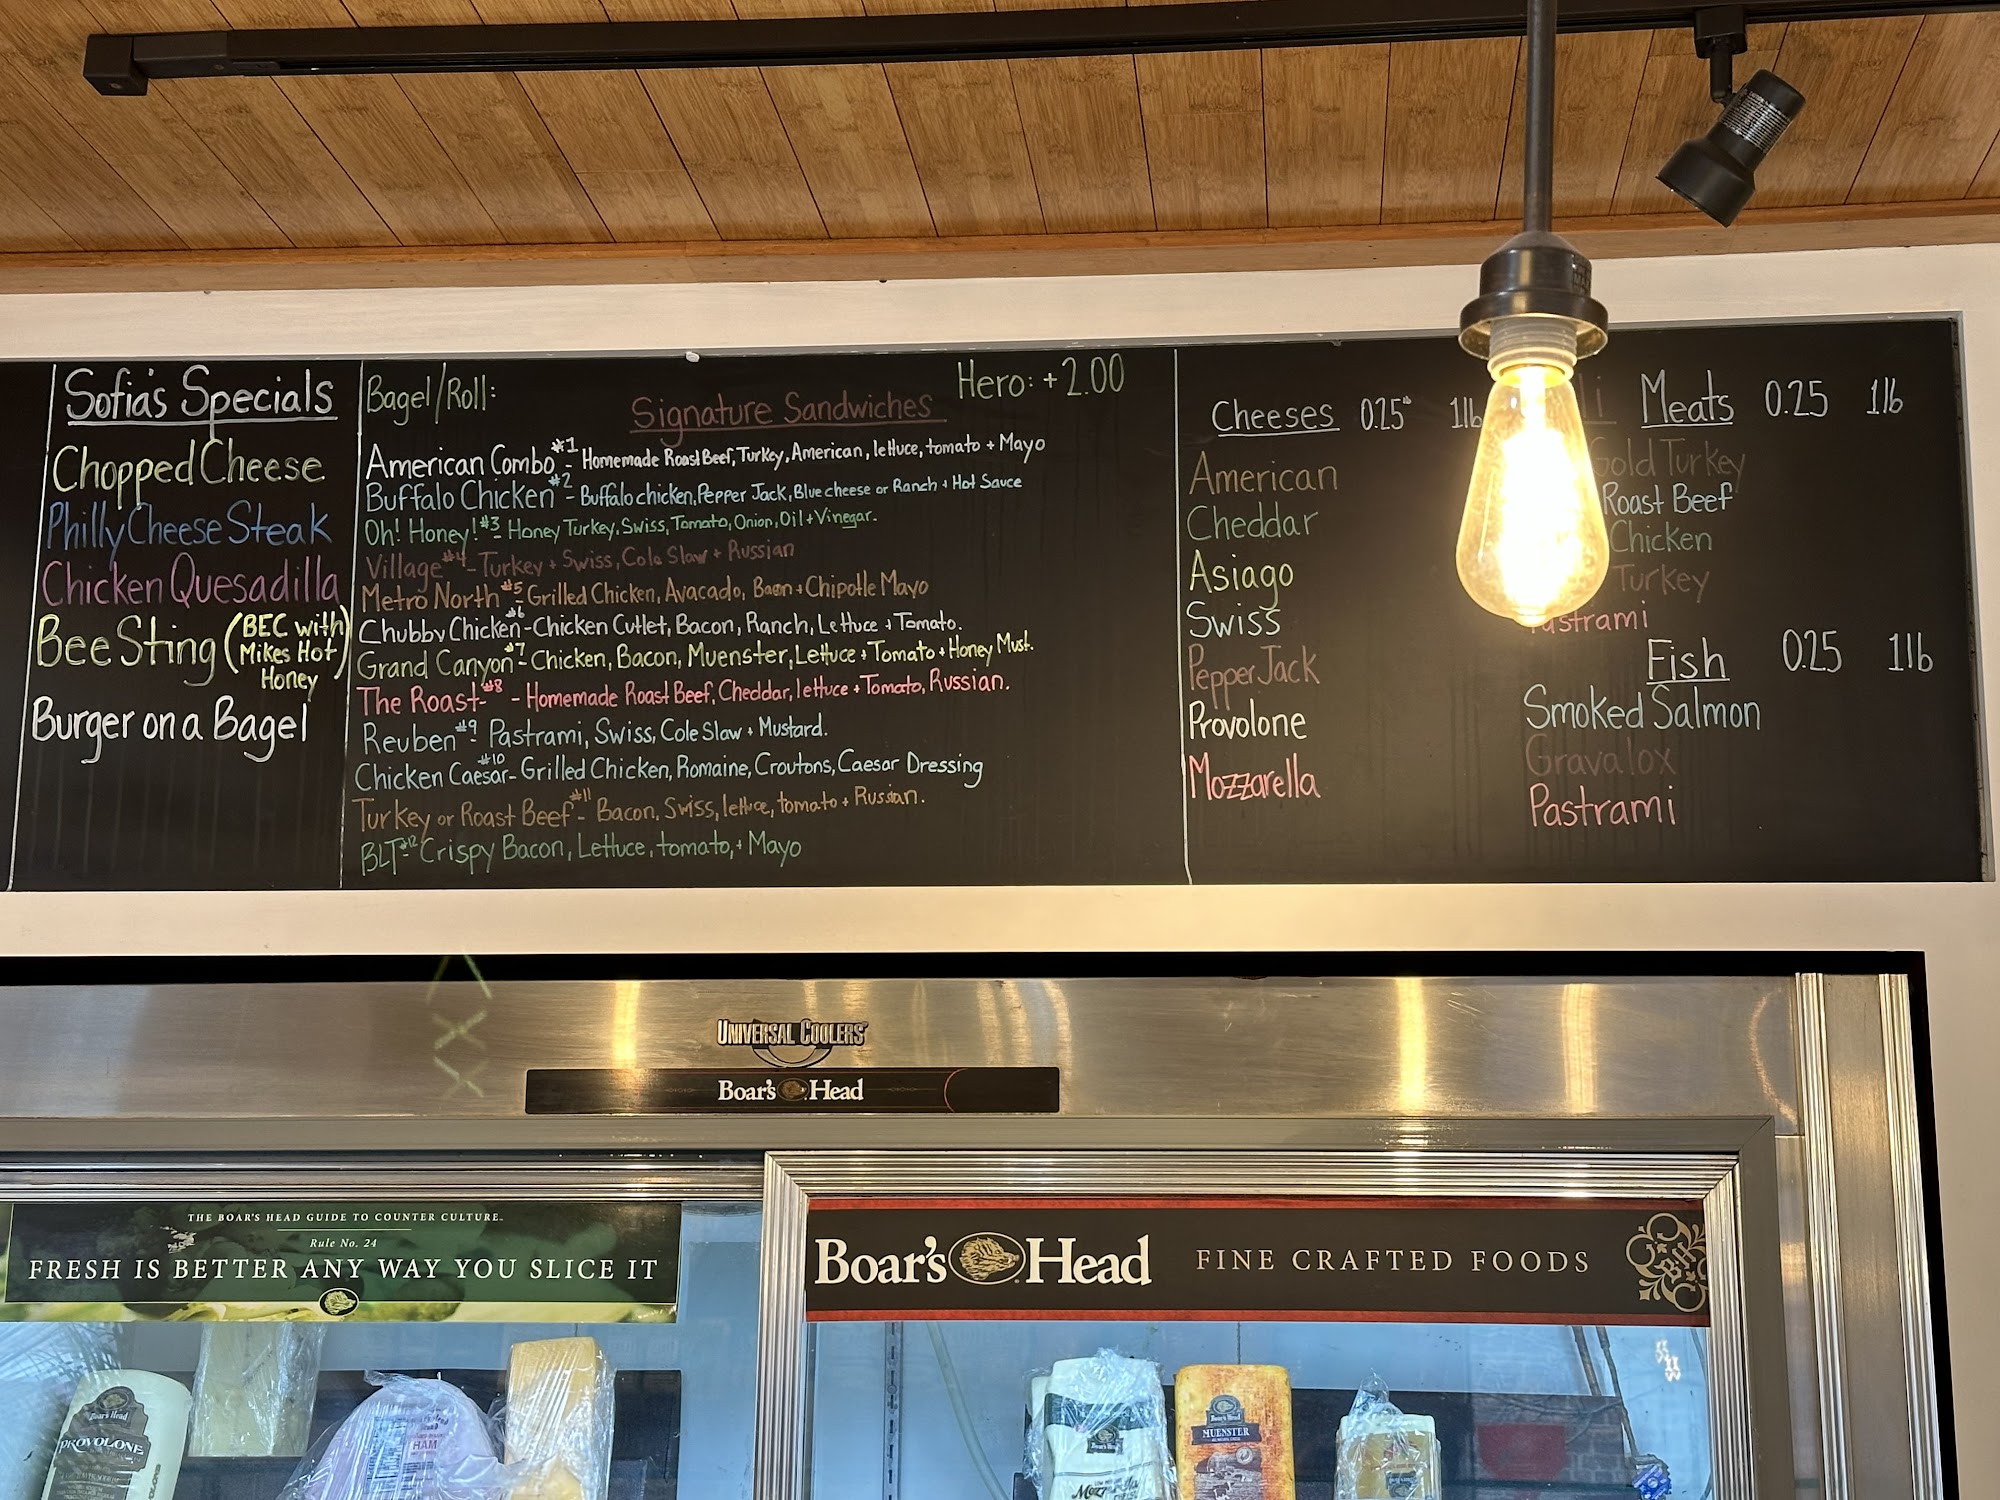 Sofia's Specials
Chopped Cheese
Philly Cheese Steak
Chicken Quesadilla
Bee Sting (BEC with
Mikes Hot
Honey)
Burger on a Bagel
Bagel/Roll:
Hero: +2.00
Signature Sandwiches
American Combo #1 - Homemade Roast Beef, Turkey, American, lettuce, tomato + Mayo
Buffalo Chicken #2 - Buffalo chicken, Pepper Jack, Blue cheese or Ranch + Hot Sauce
Oh! Honey! #3 - Honey Turkey, Swiss, Tomato, Onion, Oil + Vinegar.
Village #4 - Turkey + Swiss, Cole Slaw + Russian
Metro North #5 - Grilled Chicken, Avacado, Bacon + Chipotle Mayo
Chubby Chicken #6 - Chicken Cutlet, Bacon, Ranch, Lettuce + Tomato.
Grand Canyon #7 - Chicken, Bacon, Muenster, Lettuce + Tomato + Honey Must.
The Roast - #8 - Homemade Roast Beef, Cheddar, lettuce + Tomato, Russian.
Reuben #9 Pastrami, Swiss, Cole Slaw + Mustard.
Chicken Caesar #10 - Grilled Chicken, Romaine, Croutons, Caesar Dressing
Turkey or Roast Beef #11 - Bacon, Swiss, lettuce, tomato + Russian.
BLT #12 - Crispy Bacon, Lettuce, tomato, + Mayo
Cheeses 0.25 1lb
American
Cheddar
Asiago
Swiss
Pepper Jack
Provolone
Mozzarella
Meats 0.25 1lb
Gold Turkey
Roast Beef
Chicken
Turkey
Pastrami
Fish 0.25 1lb
Smoked Salmon
Gravalox
Pastrami
UNIVERSAL COOLERS
Boar's Head
THE BOAR'S HEAD GUIDE TO COUNTER CULTURE
Rule No. 24
FRESH IS BETTER ANY WAY YOU SLICE IT
Boar's Head FINE CRAFTED FOODS
Boar's Head
PROVOLONE
Boar's Head
Boar's Head
MUENSTER